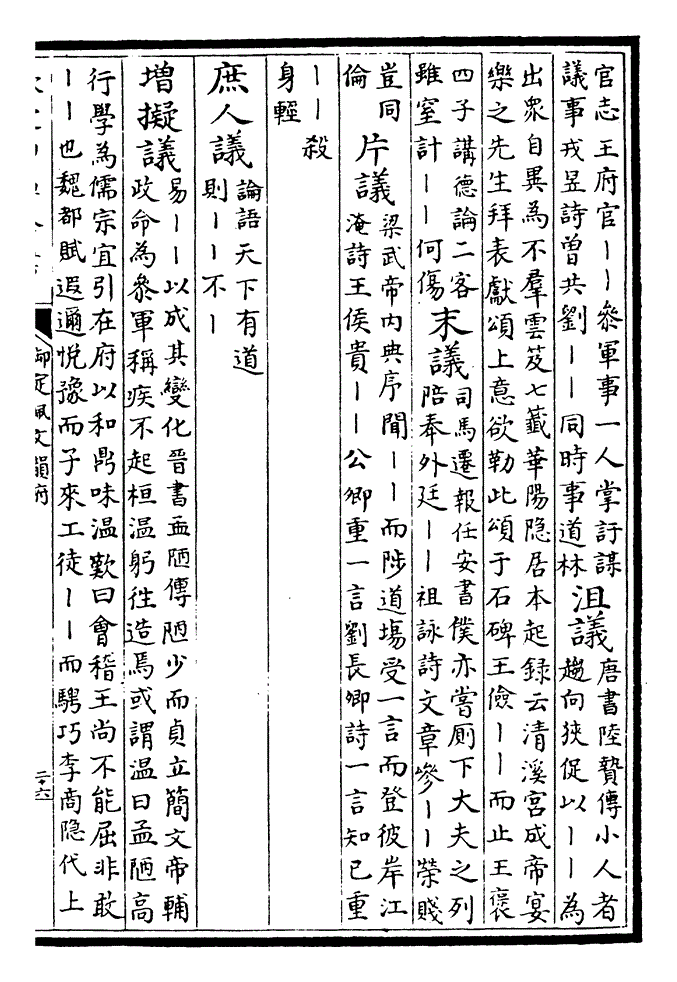 官志王府官丨丨叅軍事一人掌訏謀
議事戎昱詩曾共劉丨丨同時事道林
沮議
唐書陸贄傳小人者
趨向狹促以丨丨為
出衆自異為不羣雲笈七籤華陽隐居本起録云清溪宮成帝宴
樂之先生拜表獻頌上意欲勒此頌于石碑王儉丨丨而止王襃
四子講德論二客
雖窒計丨丨何傷
末議
司馬遷報任安書僕亦嘗厠下大夫之列
陪奉外廷丨丨祖詠詩文章參丨丨榮賤
豈同
倫
片議
梁武帝内典序聞丨丨而陟道塲受一言而登彼岸江
淹詩王侯貴丨丨公卿重一言劉長卿詩一言知已重
丨丨殺
身輕
庶人議
論語天下有道
則丨丨不丨
増擬議
易丨丨以成其變化晉書孟陋傳陋少而貞立簡文帝輔
政命為叅軍稱疾不起桓温躬徃造焉或謂温曰孟陋高
行學為儒宗宜引在府以和鼎味温歎曰會稽王尚不能屈非敢
丨丨也魏都賦遐邇悅豫而子來工徒丨丨而騁巧李商隐代上
御定佩文韻府